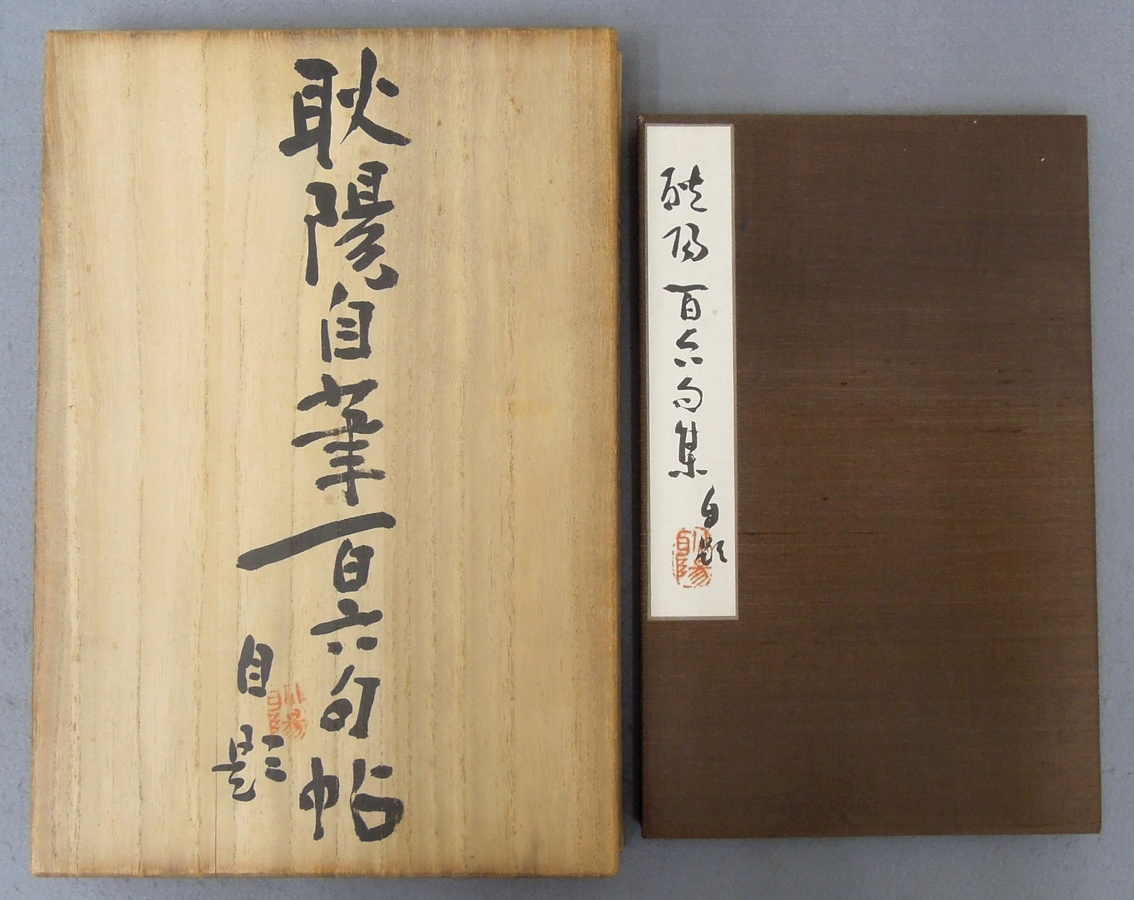 耿陽自筆百六句帖
自題
耿陽百六句集
自題